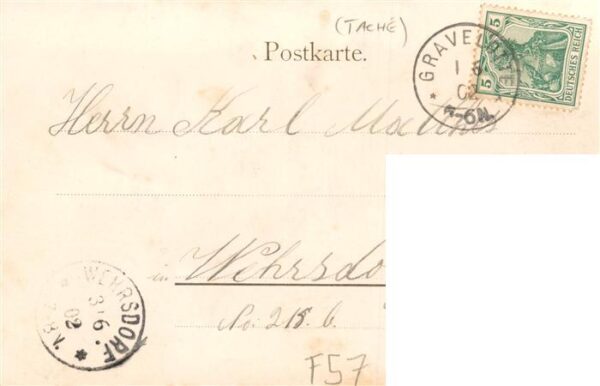 (TACHÉ)
Postkarte.
GRAVELOTTE
1 6
02
5-6N.
5 5
DEUTSCHES REICH
Herrn Karl Matthes
in Wehrsdo
No. 218. b.
WEHRSDORF
3 6.
02
8-9 V.
F57